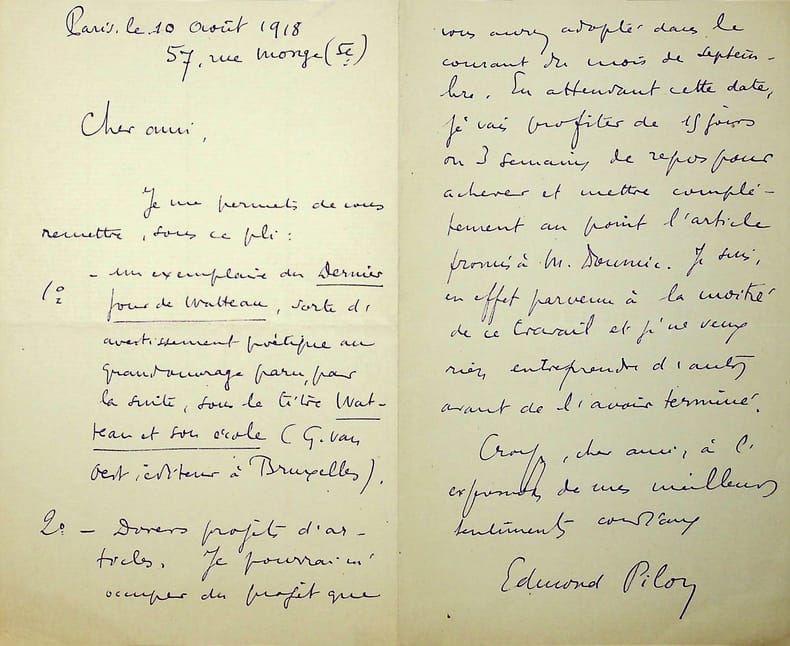 Paris. le 10 Août 1918
57, rue Monge (Ve)
Cher ami,
Je me permets de vous
remettre, sous ce pli :
1° - un exemplaire du Dernier
jour de Watteau, sorte d'
avertissement poétique au
grand ouvrage paru, par
la suite, sous le titre Wat-
teau et son école (G. van
Oest, éditeur à Bruxelles).
2° - Divers projets d'ar-
ticles. Je pourrai m'
occuper du projet que
vous aurez adopté dans le
courant du mois de Septem-
bre. En attendant cette date,
je vais profiter de 15 jours
ou 3 semaines de repos pour
achever et mettre complè-
tement au point l'article
promis à M. Doumic. Je suis,
en effet parvenu à la moitié
de ce travail et je ne veux
rien entreprendre d'autre
avant de l'avoir terminé.
Croyez, cher ami, à l'
expression de mes meilleurs
sentiments cordiaux
Edmond Pilon